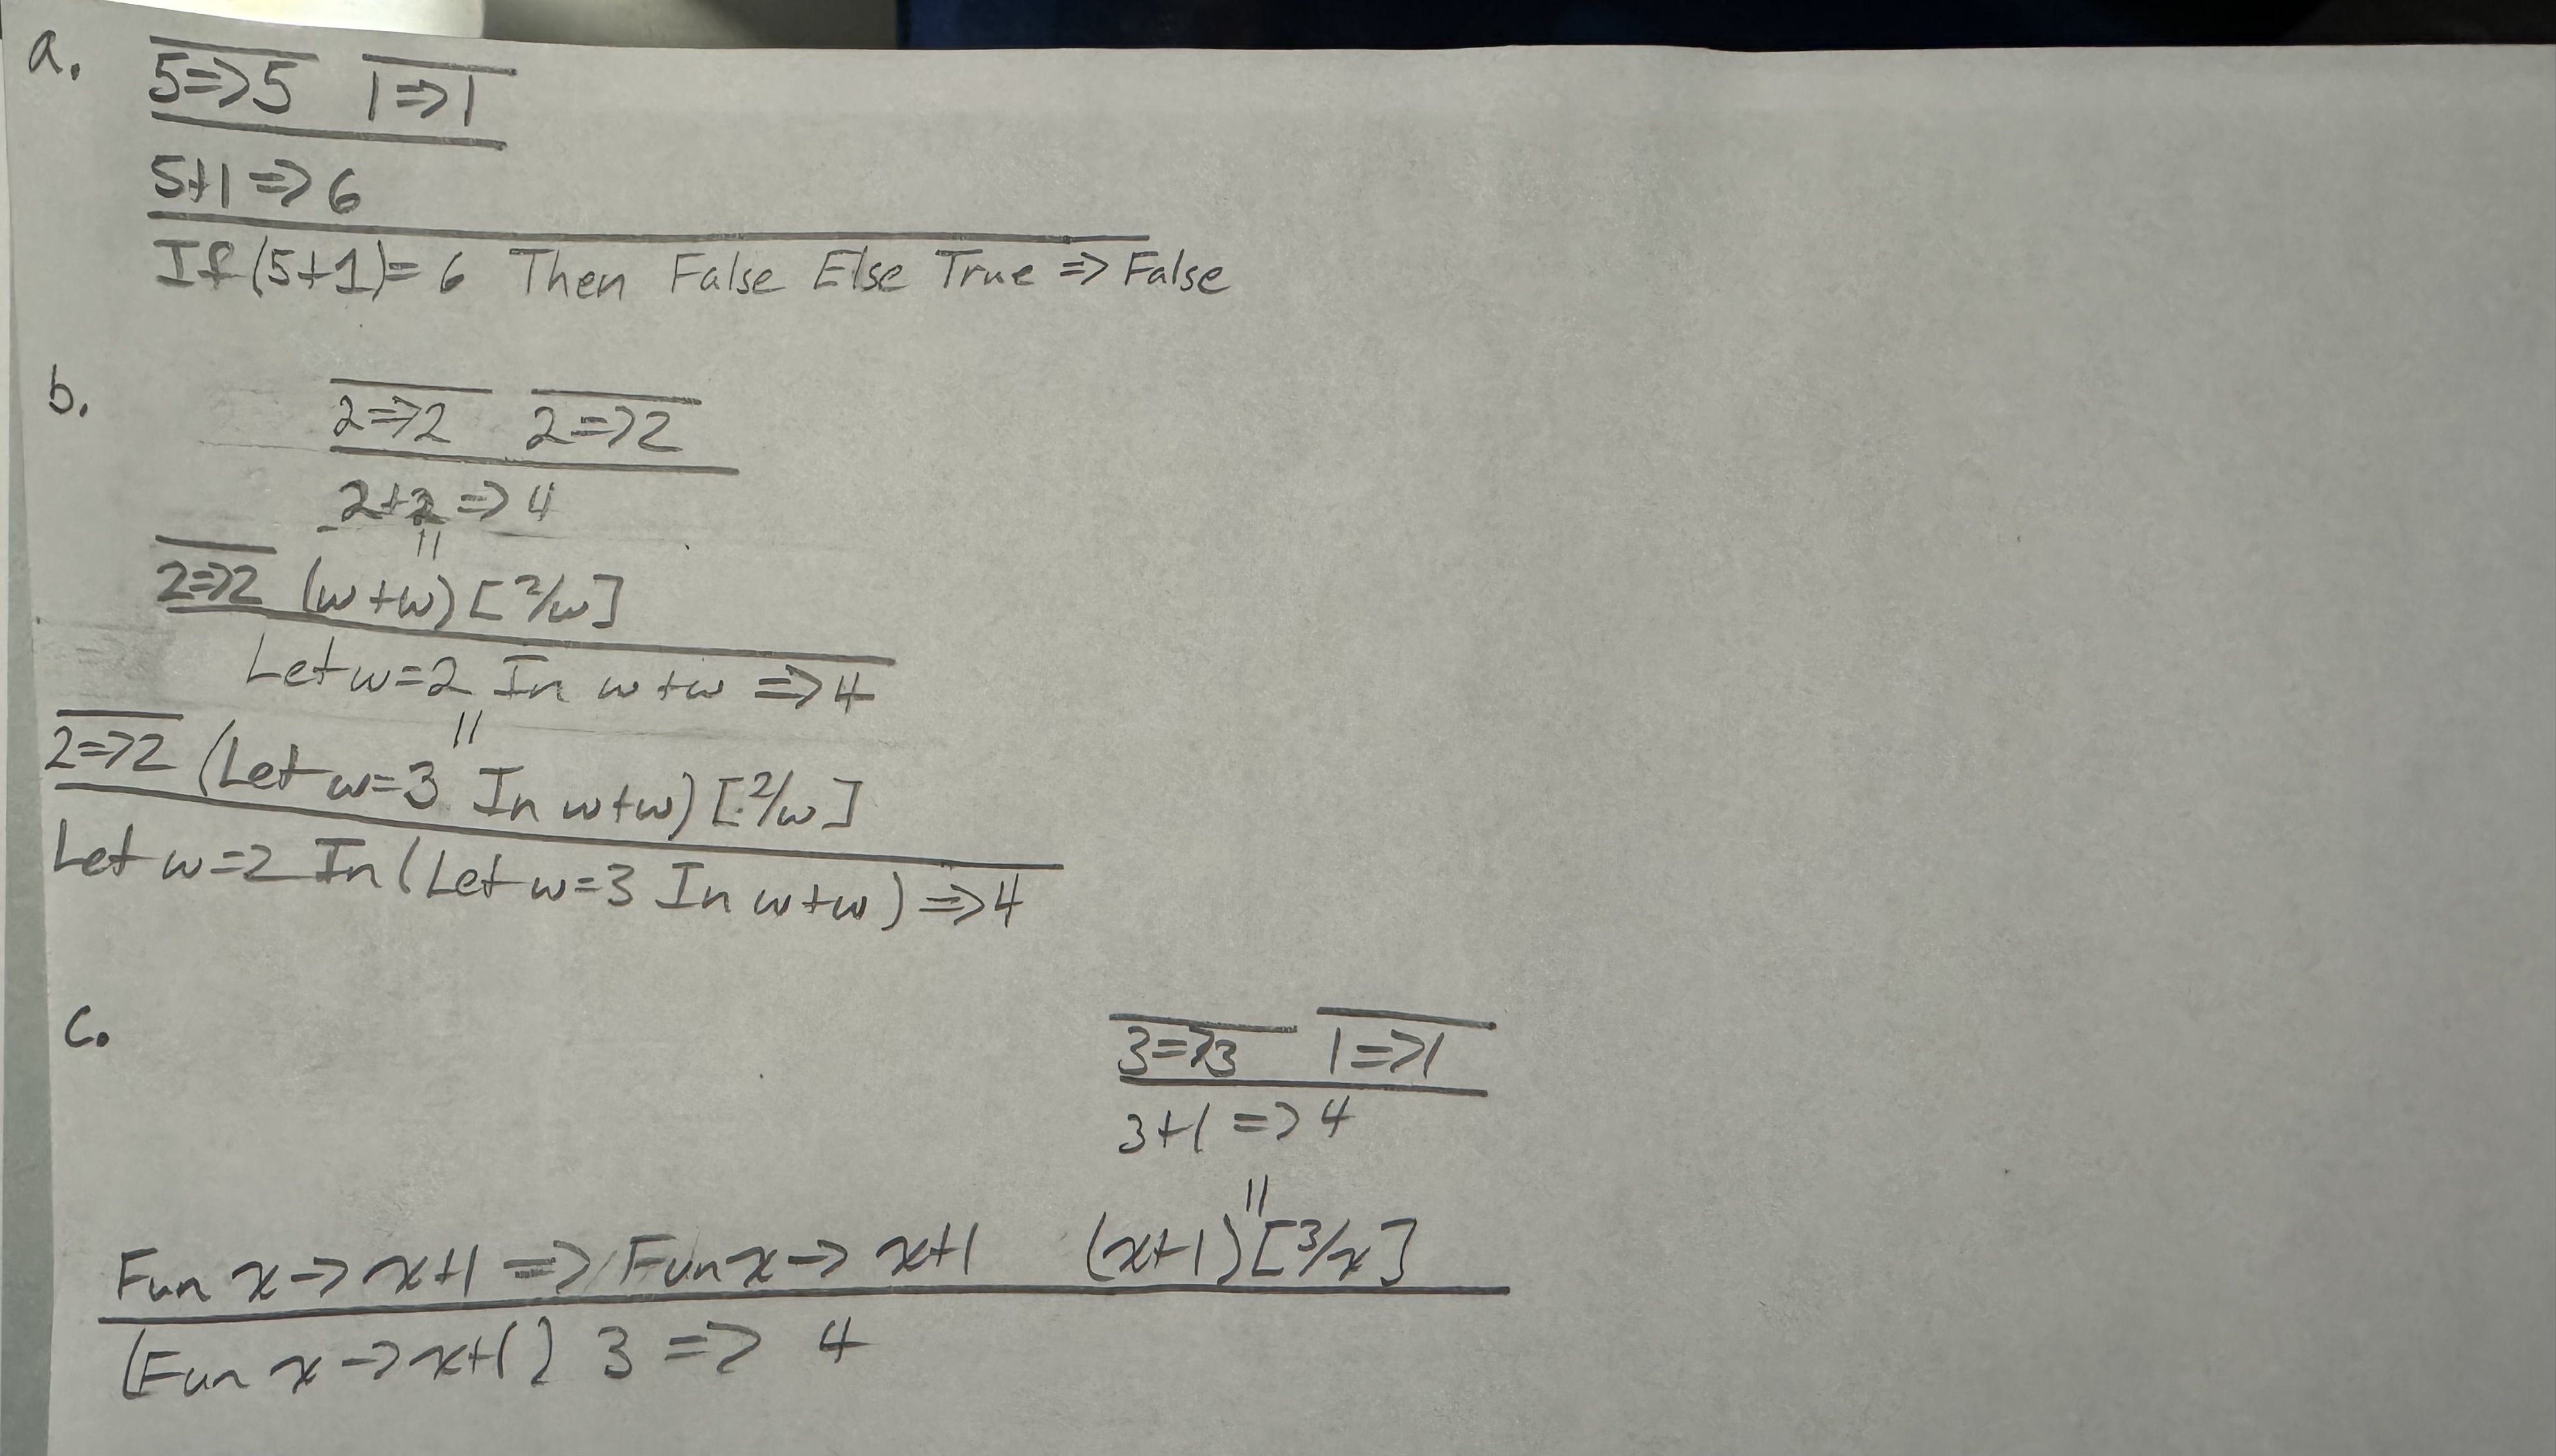 a.
5=>5 1=>1
5+1=>6
If (5+1)= 6 Then False Else True => False
b.
2=>2 2=>2
2+2=>4
||
2=>2 (w+w)[2/w]
Let w=2 In w+w =>4
||
2=>2 (Let w=3 In w+w)[2/w]
Let w=2 In (Let w=3 In w+w) =>4
c.
3=>3 1=>1
3+1=>4
||
Fun x-> x+1 => Fun x-> x+1 (x+1)[3/x]
(Fun x->x+1) 3 => 4